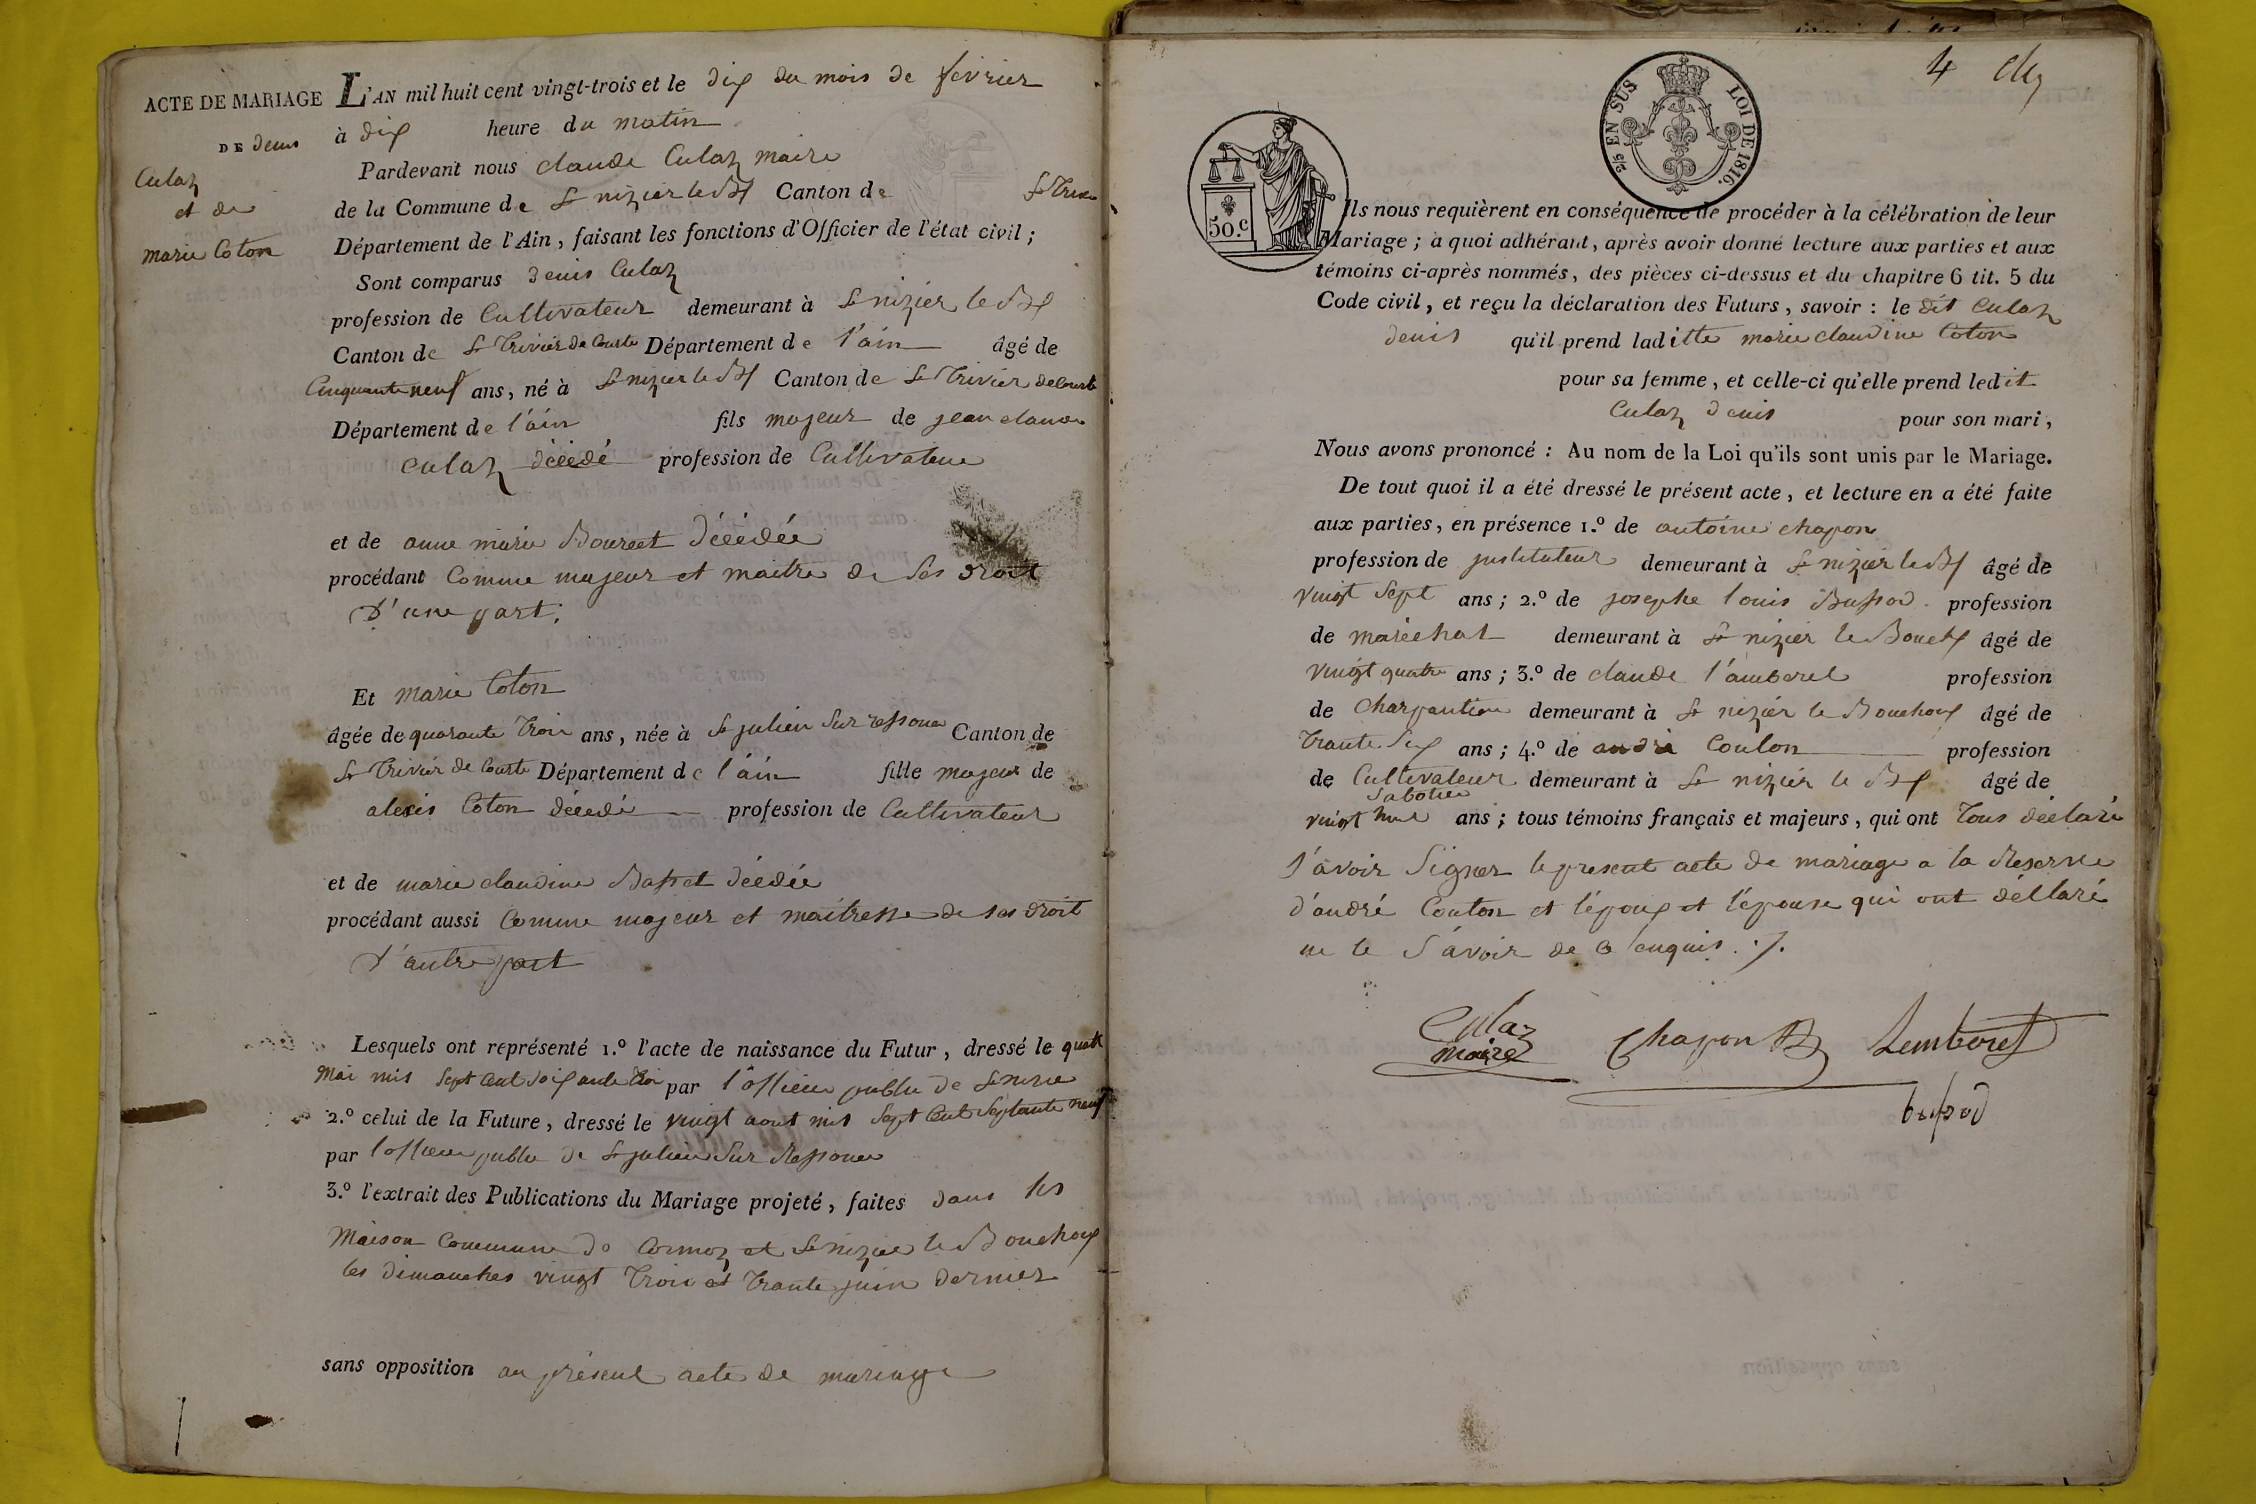 ACTE DE MARIAGE
DE denis
Culaz
et de
marie Coton
L'AN mil huit cent vingt-trois et le dix du mois de fevrier
à dix heure du matin
Pardevant nous claude Culaz maire
de la Commune de St nizier le Bx Canton de St Trivier
Département de l'Ain, faisant les fonctions d'Officier de l'état civil ;
Sont comparus denis Culaz
profession de Cultivateur demeurant à St nizier le Bx
Canton de St Trivier de Courte Département de l'ain âgé de
Cinquante neuf ans, né à St nizier le Bx Canton de St Trivier de Courte
Département de l'ain fils majeur de jean claude
culaz décédé profession de Cultivateur
et de anne marie Bourcet décédée
procédant Comme majeur et maitre de ses droit
D'une part.
Et marie Coton
âgée de quarante trois ans, née à St julien sur ressouse Canton de
St Trivier de Courte Département de l'ain fille majeur de
alexis Coton décédé profession de Cultivateur
et de marie claudine Basset décédée
procédant aussi Comme majeur et maitresse de ses droit
D'autre part
Lesquels ont représenté 1.º l'acte de naissance du Futur, dressé le quatre
mai mil sept cent soixante trois par l'officier public de St nizier
2.º celui de la Future, dressé le vingt aout mil sept Cent septante neuf
par l'officier public de St julien sur Ressouse
3.º l'extrait des Publications du Mariage projeté, faites dans les
Maison Commune de Cormoz et St nizier le Bouchoux
les dimanches vingt Trois et Trante juin dernier
sans opposition au présent acte de mariage
4
2/5 EN SUS LOI DE 1816.
50.c
Ils nous requièrent en conséquence de procéder à la célébration de leur
Mariage ; à quoi adhérant, après avoir donné lecture aux parties et aux
témoins ci-après nommés, des pièces ci-dessus et du chapitre 6 tit. 5 du
Code civil, et reçu la déclaration des Futurs, savoir : le dit Culaz
denis qu'il prend laditte marie claudine Coton
pour sa femme, et celle-ci qu'elle prend ledit
Culaz denis pour son mari,
Nous avons prononcé : Au nom de la Loi qu'ils sont unis par le Mariage.
De tout quoi il a été dressé le présent acte, et lecture en a été faite
aux parties, en présence 1.º de antoine chapon
profession de justituteur demeurant à St nizier le Bx âgé de
vingt sept ans ; 2.º de josephe louis Bussod profession
de maréchal demeurant à St nizier le Bouchx âgé de
vingt quatre ans ; 3.º de claude l'amberet profession
de Charpantier demeurant à St nizier le Bouchoux âgé de
trante six ans ; 4.º de andré Couton profession
de Cultivateur demeurant à St nizier le Bx âgé de
Sabotier
vingt huit ans ; tous témoins français et majeurs, qui ont Tous déclaré
s'avoir signer le present acte de mariage a la Reserve
d'andré Couton et l'époux et l'épouse qui ont déllaré
ne le s'avoir de ce enquis.
Culaz
maire
Chapon
Lemberet
bussod